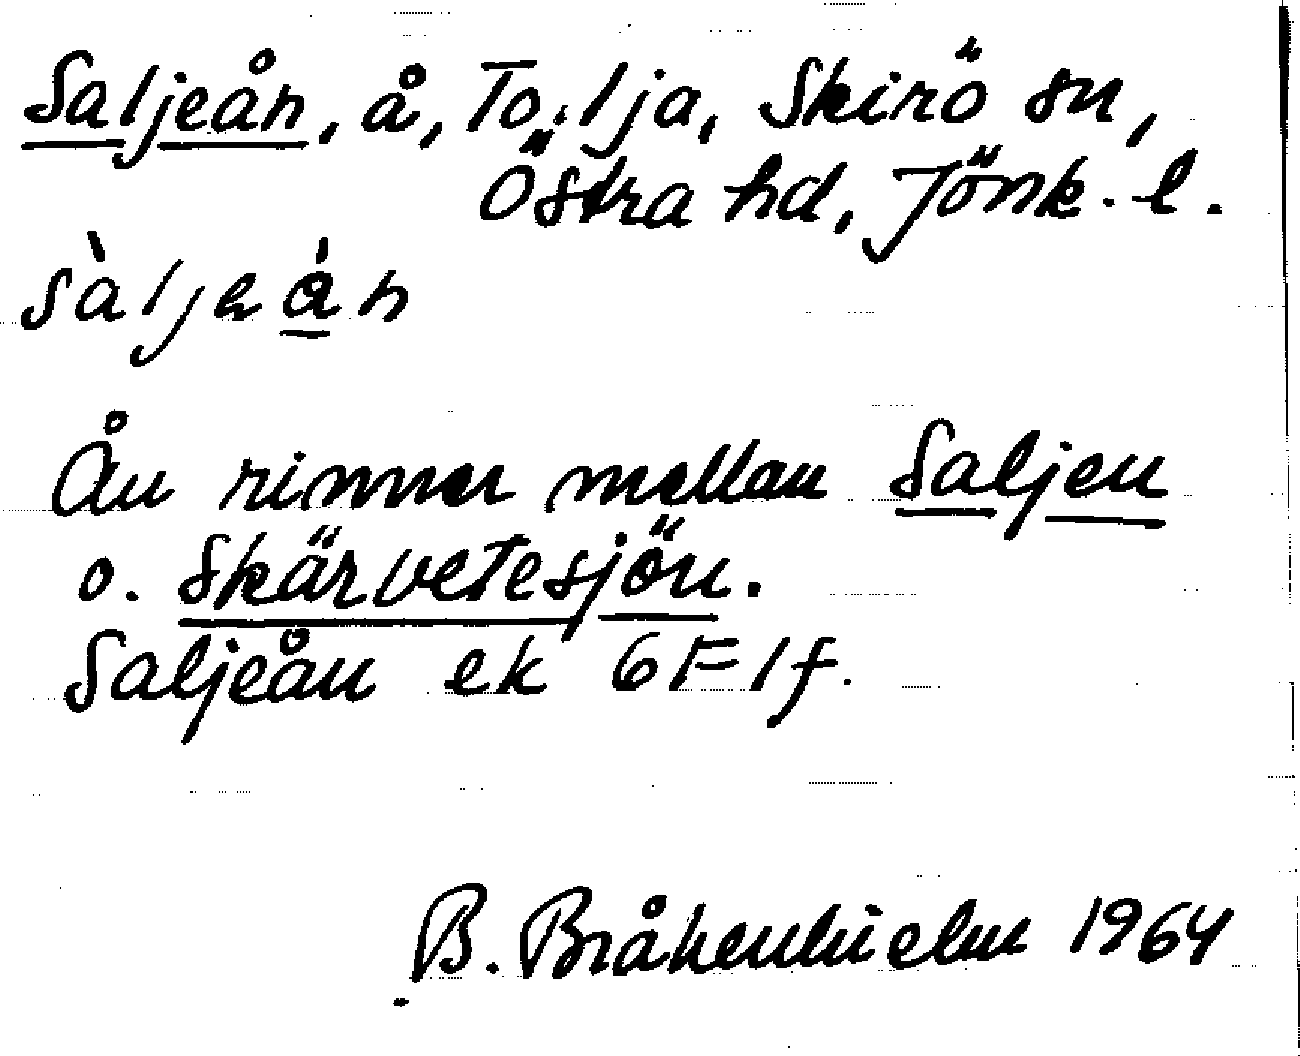 Saljeån, å, To: lja, Skirö sn,
Östra hd, Jönk. l.
sàljeån
Ån rinner mellan Saljen
o. Skärvetesjön.
Saljeån ek 6F 1f.
B. Bråkenhielm 1964